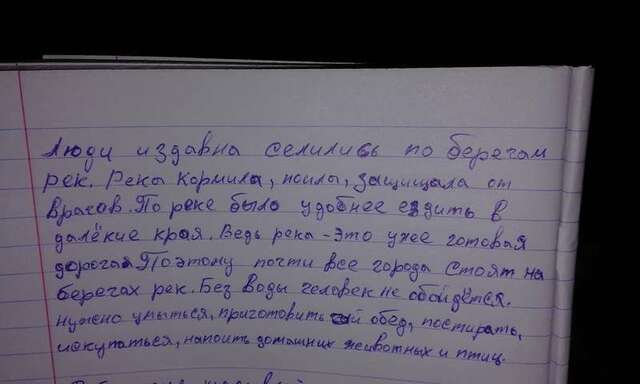 Люди издавна селились по берегам
рек. Река кормила, поила, защищала от
врагов. По реке было удобнее ездить в
далёкие края. Ведь река - это уже готовая
дорога. Поэтому почти все города стоят на
берегах рек. Без воды человек не обойдётся.
нужно умыться, приготовить обед, постирать,
искупаться, напоить домашних животных и птиц.